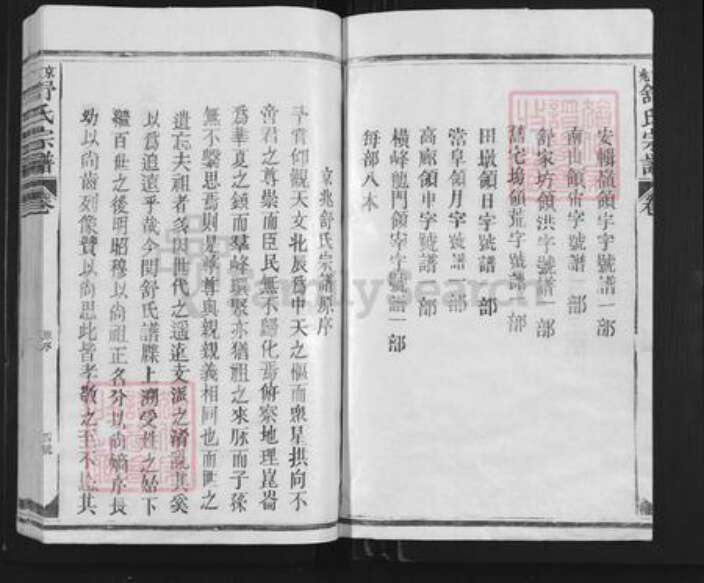 舒氏宗譜
安輯嶺領宇字號譜一部
南山領宙字號譜一部
舒家坊領洪字號譜一部
舊宅塢領荒字號譜一部
田墩領日字號譜一部
當阜領月字號譜一部
高廠領申字號譜一部
橫峰龍門領宰字號譜一部
每部八本
京兆舒氏宗譜原序
予嘗仰觀天文北辰爲中天之樞而衆星拱向不
帝君之尊崇而臣民無不歸化焉俯察地理崑崙
爲華夏之鎮而羣峰環聚亦猶祖之來脉而子孫
無不繫思焉則是尊尊與親親義相同也而世之
遺忘夫祖者多因世代之遥遠支派之淆亂其奚
以爲追遠乎哉今閱舒氏譜牒上溯受姓之始下
繼百世之後明昭穆以尚祖正名分以尚嫡序長
幼以尚齒列像贊以尚思此皆孝敬之至不啻其
京兆舒氏宗譜
卷
原序
四號
FamilySearch